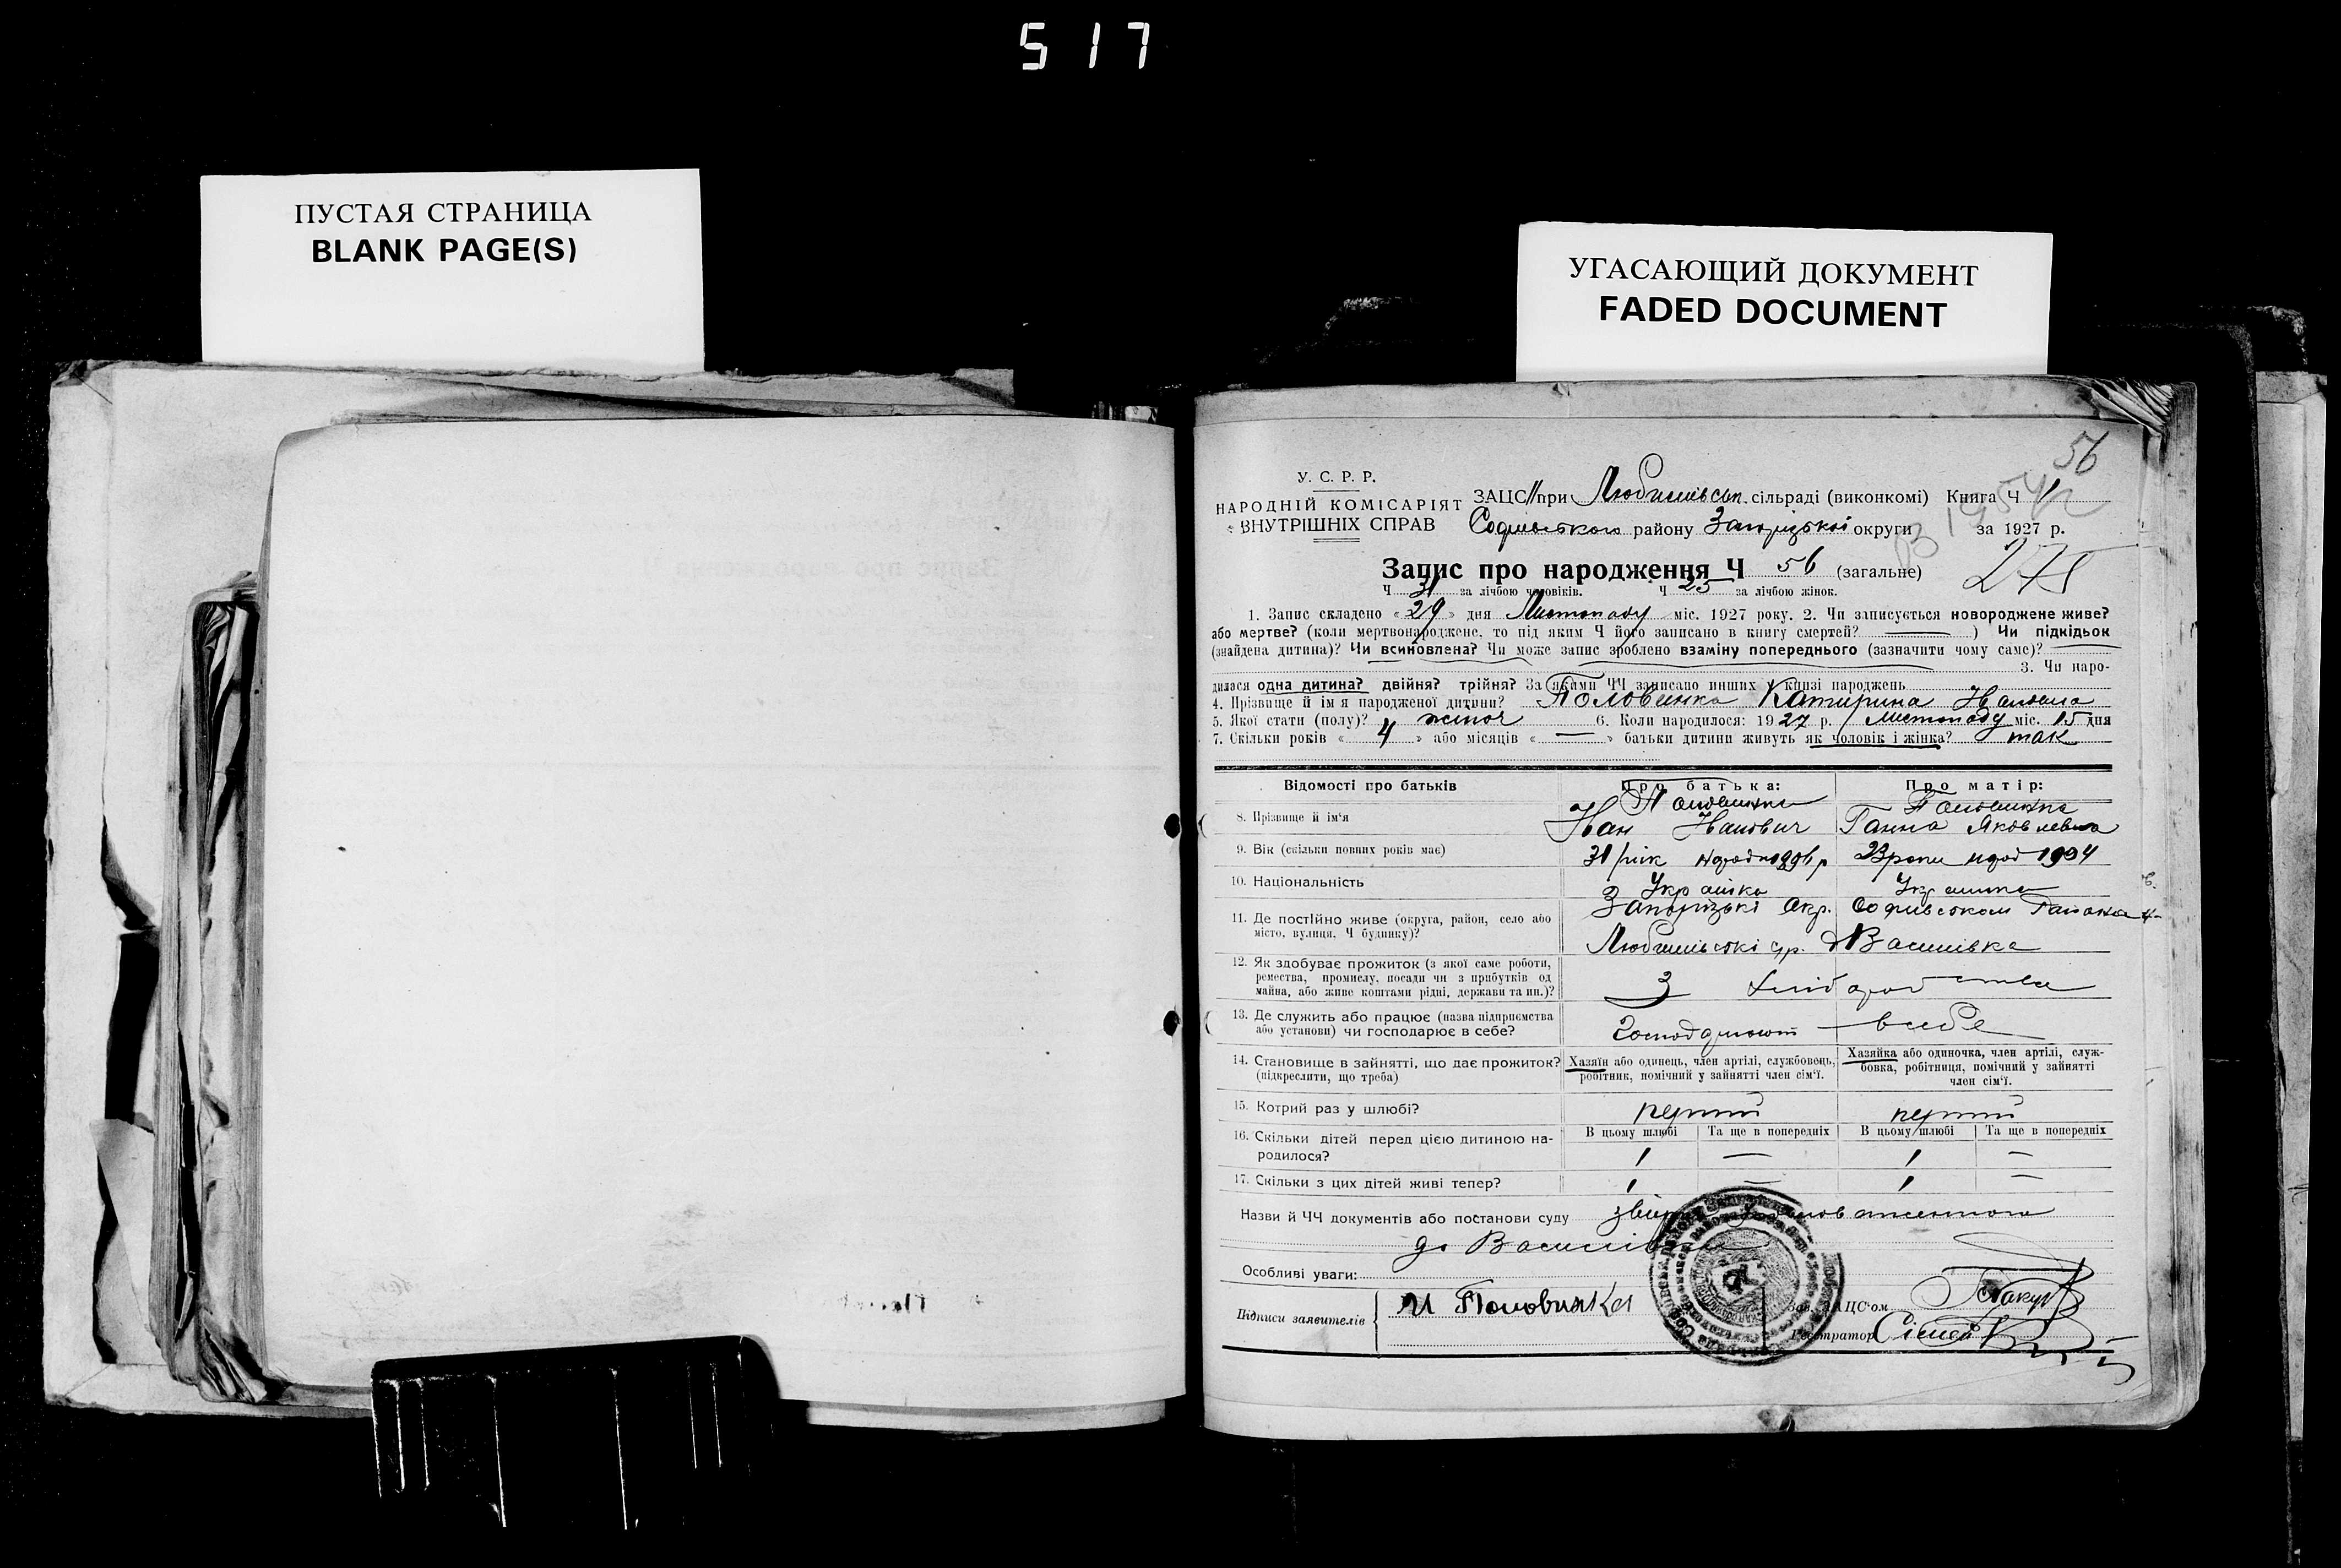 517
ПУСТАЯ СТРАНИЦА
BLANK PAGE(S)
УГАСАЮЩИЙ ДОКУМЕНТ
FADED DOCUMENT
56
У. С. Р. Р.
НАРОДНІЙ КОМІСАРІЯТ
ВНУТРІШНІХ СПРАВ
ЗАЦС при Любимівськ. сільраді (виконкомі) Книга Ч 1
Софиевского району Запорізької округи за 1927 р.
275
Запис про народження Ч 56 (загальне)
Ч 31 за лічбою чоловіків. Ч 25 за лічбою жінок.
1. Запис складено «29» дня Листопаду міс. 1927 року. 2. Чи записується новороджене живе?
або мертве? (коли мертвонароджене, то під яким Ч його записано в книгу смертей? — ) Чи підкідьок
(знайдена дитина)? Чи всиновлена? Чи може запис зроблено взаміну попереднього (зазначити чому саме)? —
3. Чи наро-
дилася одна дитина? двійня? трійня? За якими ЧЧ записано инших у книзі народжень
4. Прізвище й ім'я народженої дитини? Половинка Катирина Ивановна
5. Якої стати (полу)? жіноч 6. Коли народилося: 1927 р. Листопаду міс. 15 дня
7. Скільки років «4» або місяців « — » батьки дитини живуть як чоловік і жінка? так
Відомості про батьків Про батька: Про матір:
8. Прізвище й ім'я Половинка Иван Иванович Половинка Ганна Яковлевна
9. Вік (скільки повних років має) 31 рік 23 роки 1904
10. Національність Українка Українка
11. Де постійно живе (округа, район, село або
місто, вулиця, Ч будинку)?
Запорізькі Окр. Софиевском Района
Любимівські с/р. Василівка
12. Як здобуває прожиток (з якої саме роботи,
ремества, промислу, посади чи з прибутків од
майна, або живе коштами рідні, держави та ин.)?
З хлібороб ства
13. Де служить або працює (назва підприємства
або установи) чи господарює в себе?
Господарюют в себе
14. Становище в зайнятті, що дає прожиток?
(підкреслити, що треба)
Хазяїн або одинець, член артілі, службовець,
робітник, помічний у зайнятті член сім'ї.
Хазяйка або одиночка, член артілі, служ-
бовка, робітниця, помічний у зайнятті
член сім'ї.
15. Котрий раз у шлюбі? перший перший
16. Скільки дітей перед цією дитиною на-
родилося?
В цьому шлюбі Та ще в попередніх В цьому шлюбі Та ще в попередніх
1 — 1 —
17. Скільки з цих дітей живі тепер? 1 — 1 —
Назви й ЧЧ документів або постанови суду
Особливі уваги:
Підписи заявителів И Половинка
Зав. ЗАЦС'ом
Реєстратор